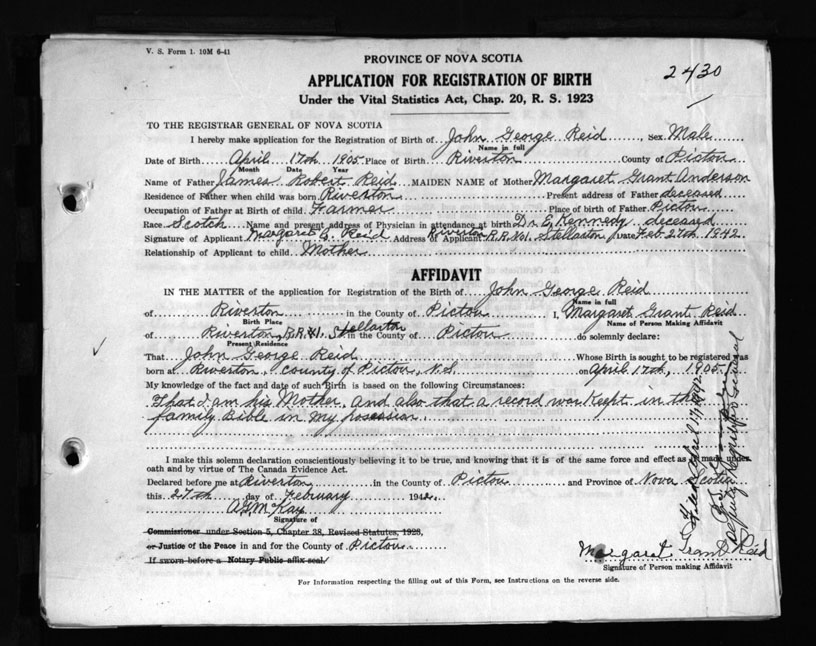 V. S. Form 1. 10M 6-41
PROVINCE OF NOVA SCOTIA
2430
APPLICATION FOR REGISTRATION OF BIRTH
Under the Vital Statistics Act, Chap. 20, R. S. 1923
TO THE REGISTRAR GENERAL OF NOVA SCOTIA
I hereby make application for the Registration of Birth of John George Reid, Sex Male
Name in full
Date of Birth April 17th 1905 Place of Birth Riverton County of Picton
Month Date Year
Name of Father James Robert Reid MAIDEN NAME of Mother Margaret Grant Anderson
Residence of Father when child was born Riverton Present address of Father deceased
Occupation of Father at Birth of child Farmer Place of birth of Father Picton
Race Scotch Name and present address of Physician in attendance at birth Dr E. Kennedy deceased
Signature of Applicant Margaret G. Reid Address of Applicant Riverton R.R.No1. Stellarton Date Feb. 27th 1942.
Relationship of Applicant to child Mother
AFFIDAVIT
IN THE MATTER of the application for Registration of the Birth of John George Reid
Name in full
of Riverton in the County of Picton I, Margaret Grant Reid
Birth Place Name of Person Making Affidavit
of Riverton, R.R.#1. Stellarton in the County of Picton do solemnly declare:
Present Residence
That John George Reid Whose Birth is sought to be registered as
born at Riverton, County of Picton, N.S. on April 17th, 1905.
My knowledge of the fact and date of such Birth is based on the following Circumstances:
That I am his Mother. And also that a record was kept in the
family Bible in my posession
I make this solemn declaration conscientiously believing it to be true, and knowing that it is of the same force and effect as if made under
oath and by virtue of The Canada Evidence Act.
Declared before me at Riverton in the County of Picton and Province of Nova Scotia
this 27th day of February 1942.
A.G. McKay
Signature of
Commissioner under Section 5, Chapter 38, Revised Statutes, 1923,
or Justice of the Peace in and for the County of Picton
If sworn before a Notary Public affix seal
Margaret Grant Reid
Signature of Person making Affidavit
For Information respecting the filling out of this Form, see Instructions on the reverse side.
Filed April 17, 1942
Deputy Registrar General